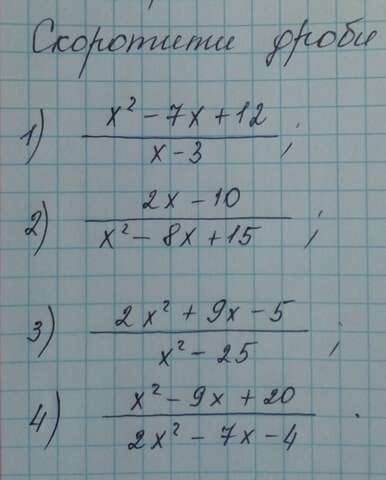 Скоротити дроби
1) (x² - 7x + 12) / (x - 3) ;
2) (2x - 10) / (x² - 8x + 15) ;
3) (2x² + 9x - 5) / (x² - 25) ;
4) (x² - 9x + 20) / (2x² - 7x - 4) .